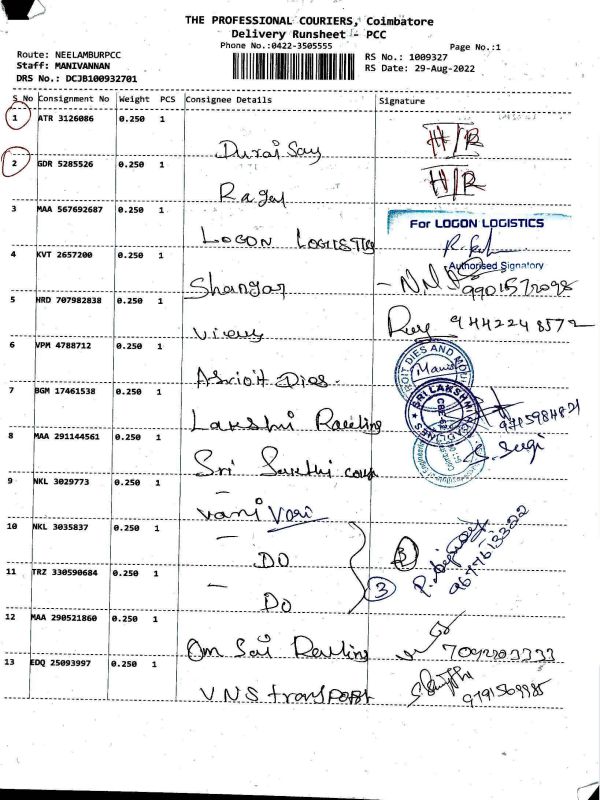 THE PROFESSIONAL COURIERS, Coimbatore
Delivery Runsheet - PCC
Phone No.:0422-3505555
Page No.:1
Route: NEELAMBURPCC
Staff: MANIVANNAN
DRS No.: DCJB100932701
RS No.: 1009327
RS Date: 29-Aug-2022
S No Consignment No Weight PCS Consignee Details Signature
1 ATR 3126086 0.250 1
Durai Samy H/R
2 GDR 5285526 0.250 1
Ragul H/R
3 MAA 567692687 0.250 1
LOGON LOGISTIC For LOGON LOGISTICS
Authorised Signatory
4 KVT 2657200 0.250 1
Shangar
5 HRD 707982838 0.250 1
9442248572
6 VPM 4788712 0.250 1
Dies
7 BGM 17461538 0.250 1
Lakshi
8 MAA 291144561 0.250 1
Sri Sakthi
9 NKL 3029773 0.250 1
Vani Vari
10 NKL 3035837 0.250 1
DO
11 TRZ 330590684 0.250 1
DO 3
12 MAA 290521860 0.250 1
Om Sai
13 EDQ 25093997 0.250 1
VNS transport